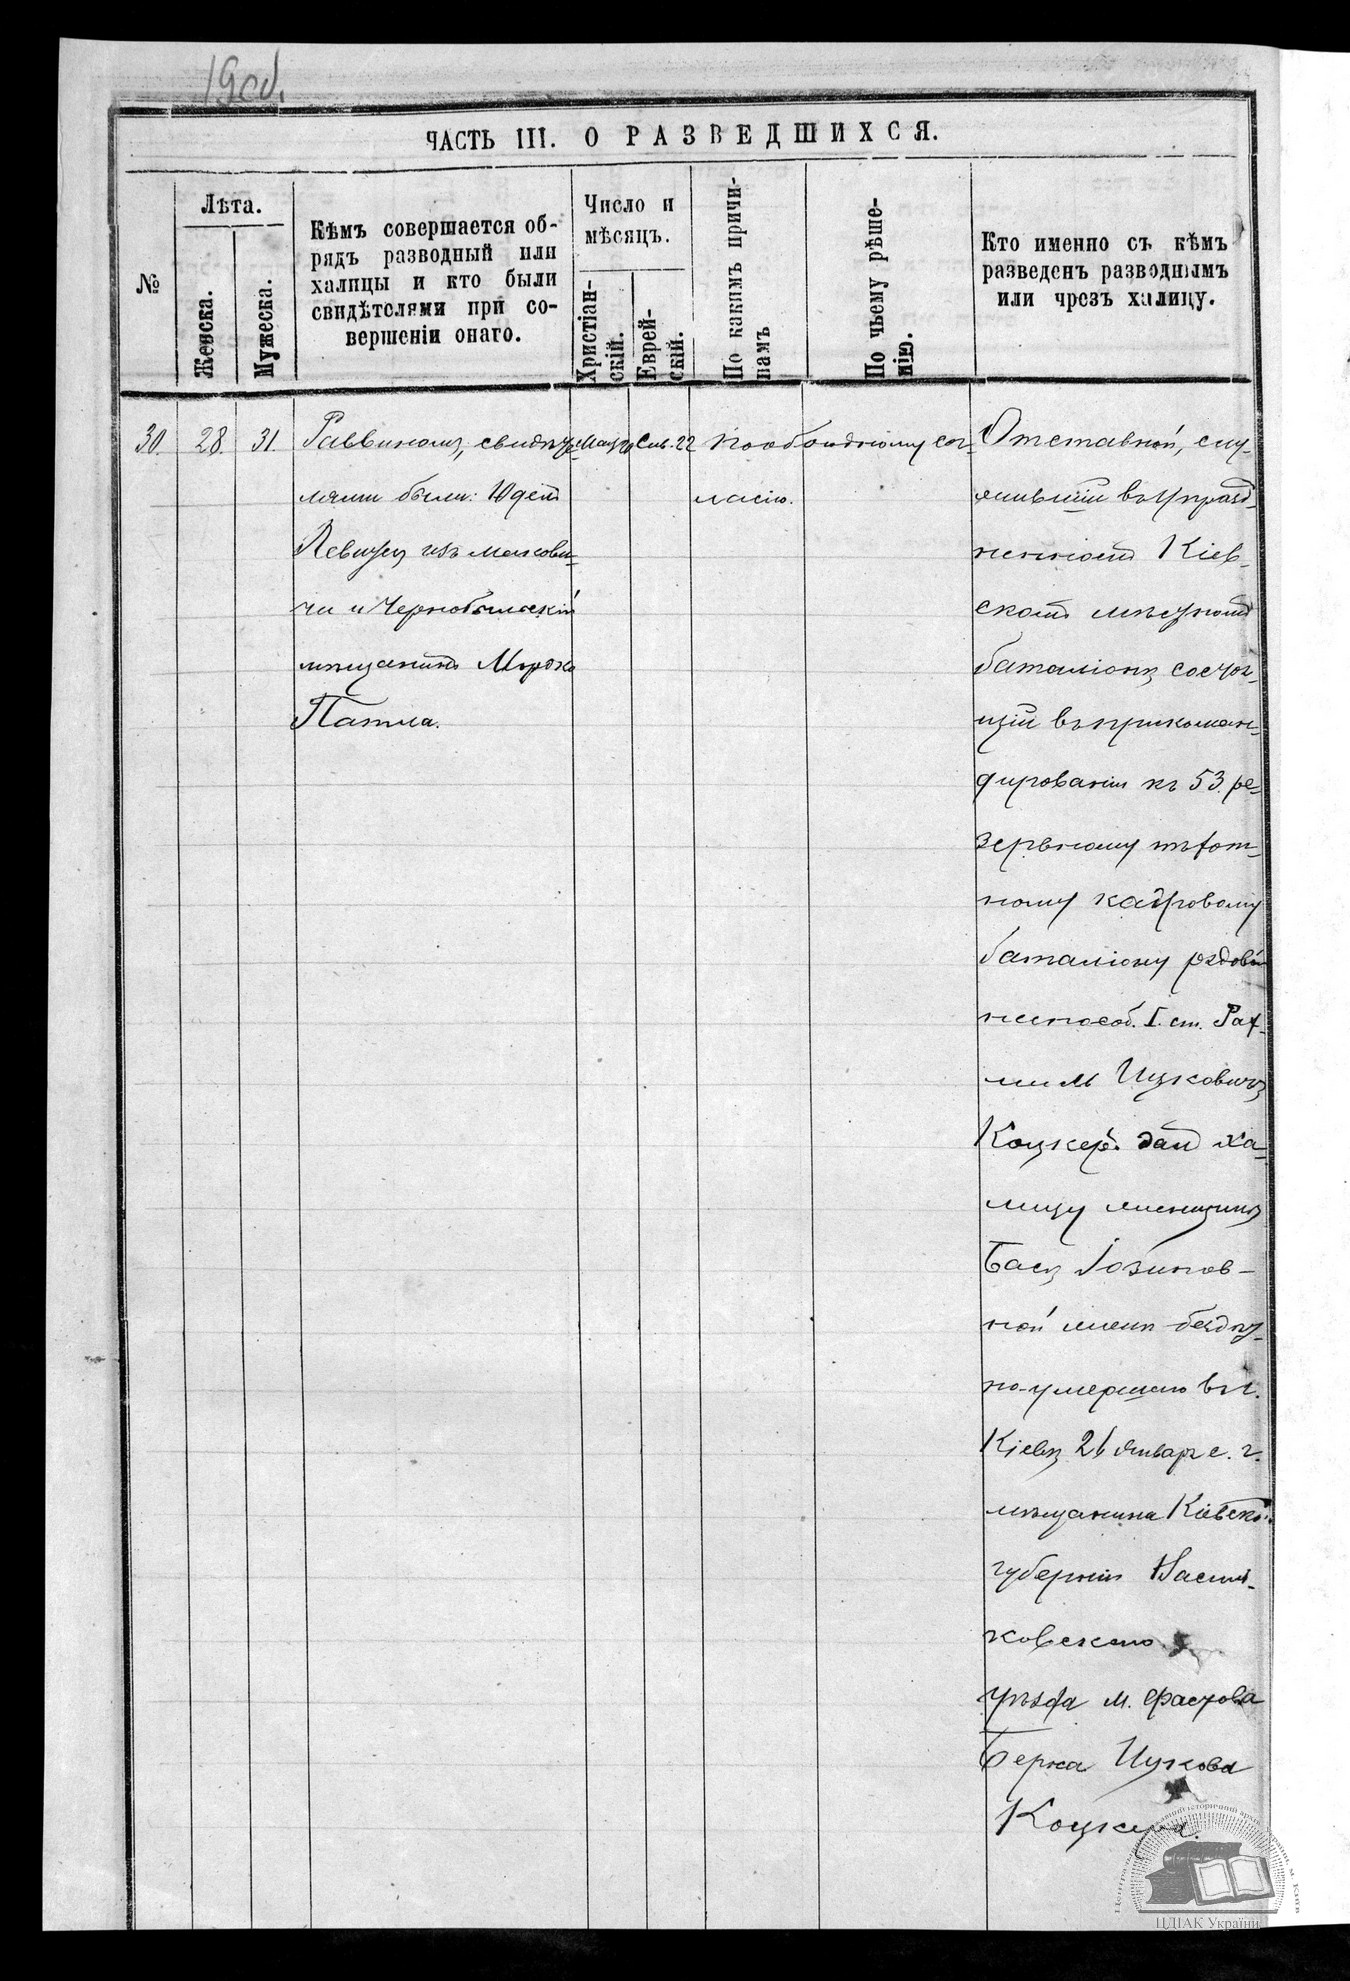 190 об.
ЧАСТЬ III. О РАЗВЕДШИХСЯ.
№
Лѣта.
Женска.
Мужеска.
Кѣмъ совершается об-
рядъ разводный или
халицы и кто были
свидѣтелями при со-
вершеніи онаго.
Число и
мѣсяцъ.
Христіан-
скій.
Еврей-
скій.
По какимъ причи-
намъ
По чьему рѣше-
нію.
Кто именно съ кѣмъ
разведенъ разводнымъ
или чрезъ халицу.
30.
28.
31.
Раввиномъ, свидѣте-
лями были:
Левитъ изъ
и Чернобыльскій
мѣщанинъ Мордко
Патла.
22
по обоюдному сог-
ласію.
Отставной, слу-
жившій въ упразд-
ненномъ Кіев-
скомъ мѣстномъ
баталіонѣ состоя-
щій въ прикоман-
дированіи къ 53 ре-
зервному пѣхот-
ному кадровому
баталіону рядовой
неспособ. I. ст. Рах-
миль Ицковичъ
Коцкеръ. далъ ха-
лицу женщинѣ
Басѣ
ной женѣ бездѣт-
но-умершаго въ г.
Кіевѣ 26 Января с. г.
мѣщанина Кіевской
губерніи Василь-
ковскаго
уѣзда м. Фастова
Берка Ицкова
Коцкера.
ЦДІАК України